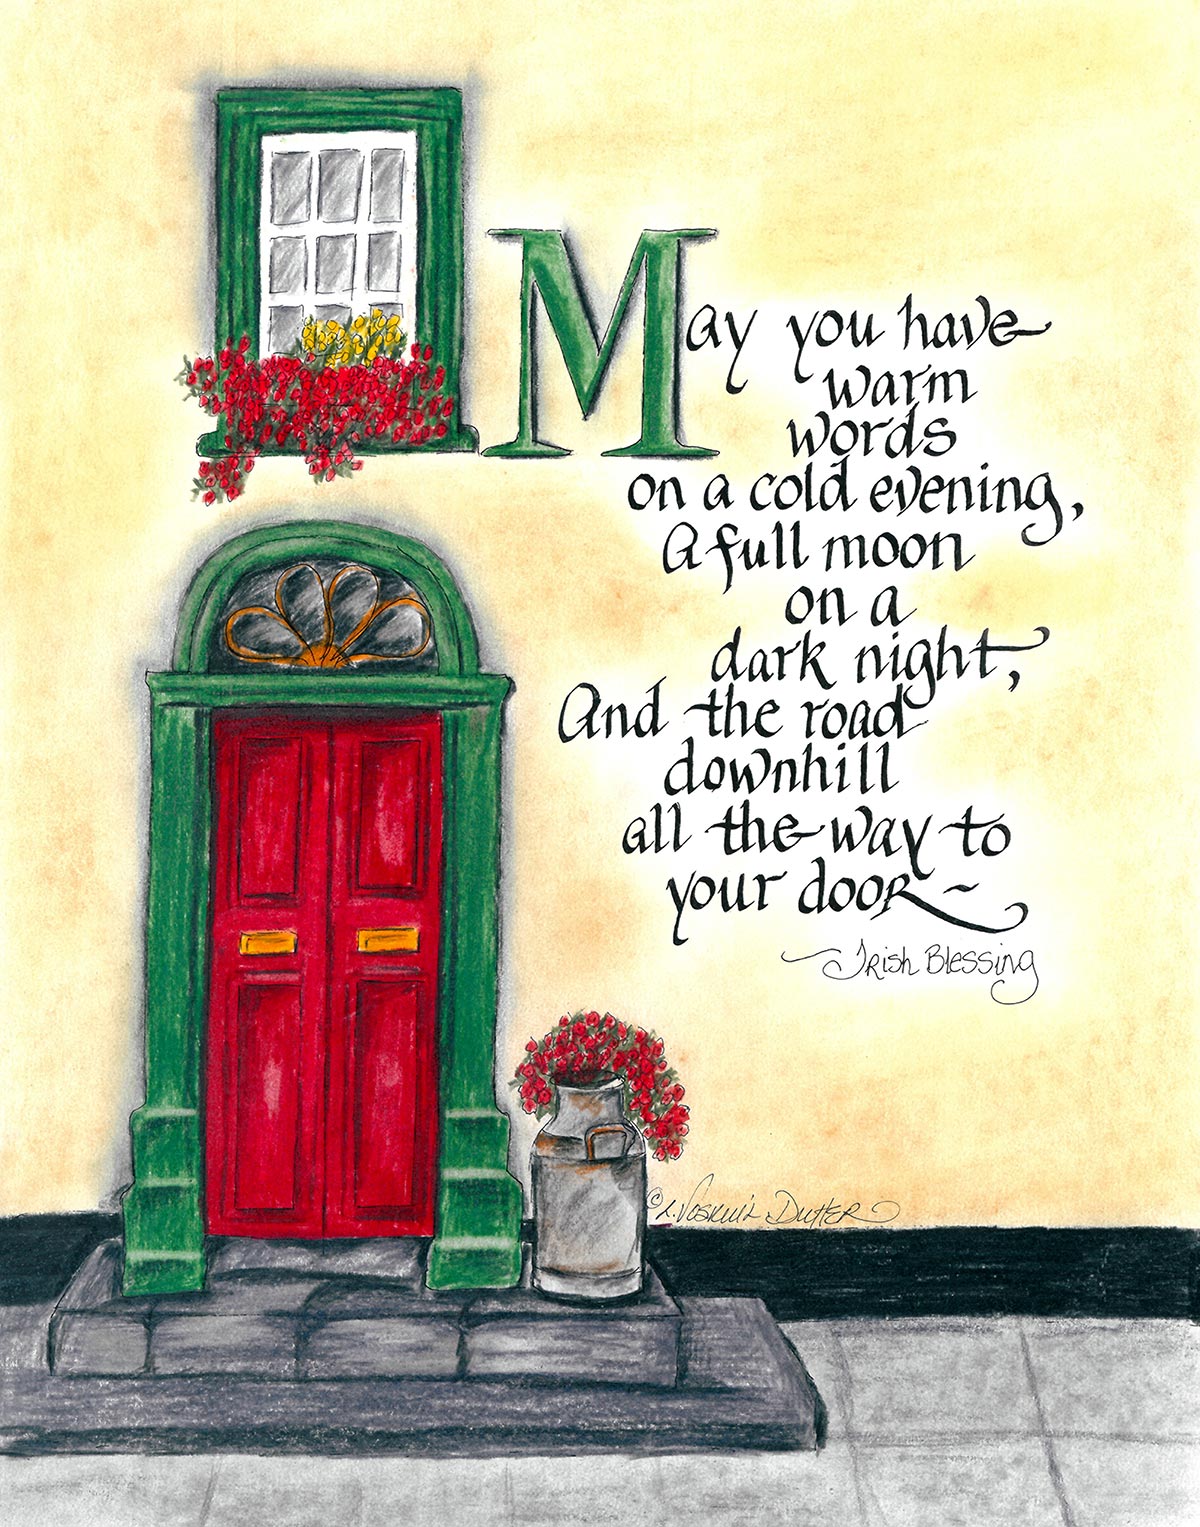 May you have
warm
words
on a cold evening,
A full moon
on a
dark night,
And the road
downhill
all the way to
your door~
~Irish Blessing
©L. Voskuil Dutter